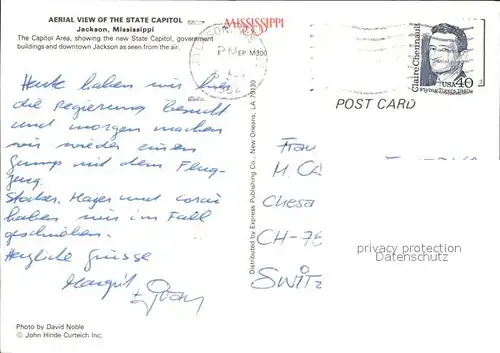 AERIAL VIEW OF THE STATE CAPITOL
Jackson, Mississippi
The Capitol Area, showing the new State Capitol, government
buildings and downtown Jackson as seen from the air.
MISSISSIPPI
EP-M300
PM
Heute haben wir hier
die Regierung besucht
und morgen machen
wir wieder einen
Jump mit dem Flug-
zeug.
haben wir im Fall
geschrieben.
Herzliche Grüsse
Margrit
Distributed by Express Publishing Co., New Orleans, LA 70130
Claire Chennault
USA 40
Flying Tigers, 1940s
POST CARD
Frau
M. Ca
Chesa
CH-75
SWITZ
privacy protection
Datenschutz
Photo by David Noble
© John Hinde Curteich Inc.